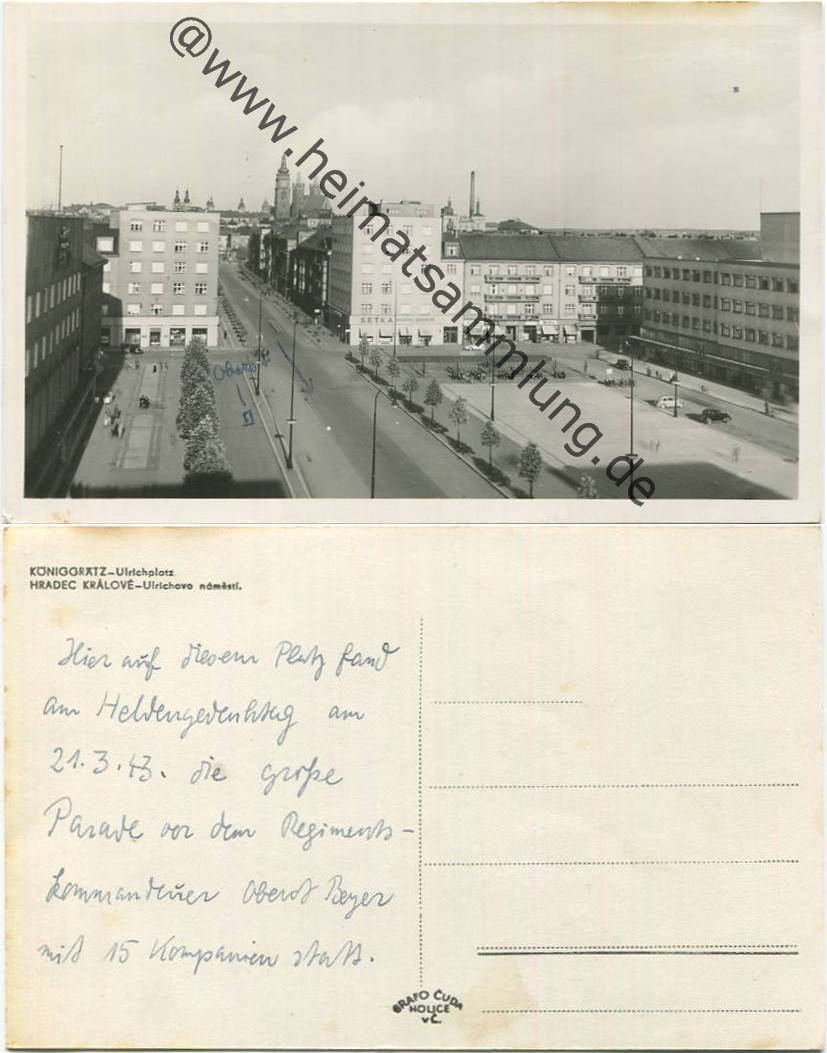 @www.heimatsammlung.de
SETKA
Oberst
KÖNIGGRÄTZ–Ulrichplatz.
HRADEC KRÁLOVÉ–Ulrichovo náměstí.
Hier auf diesem Platz fand
am Heldengedenktag am
21.3.43. die große
Parade vor dem Regiments-
kommandeuer Oberst Beyer
mit 15 Kompanien statt.
GRAFO ČUDA
HOLICE
v Č.